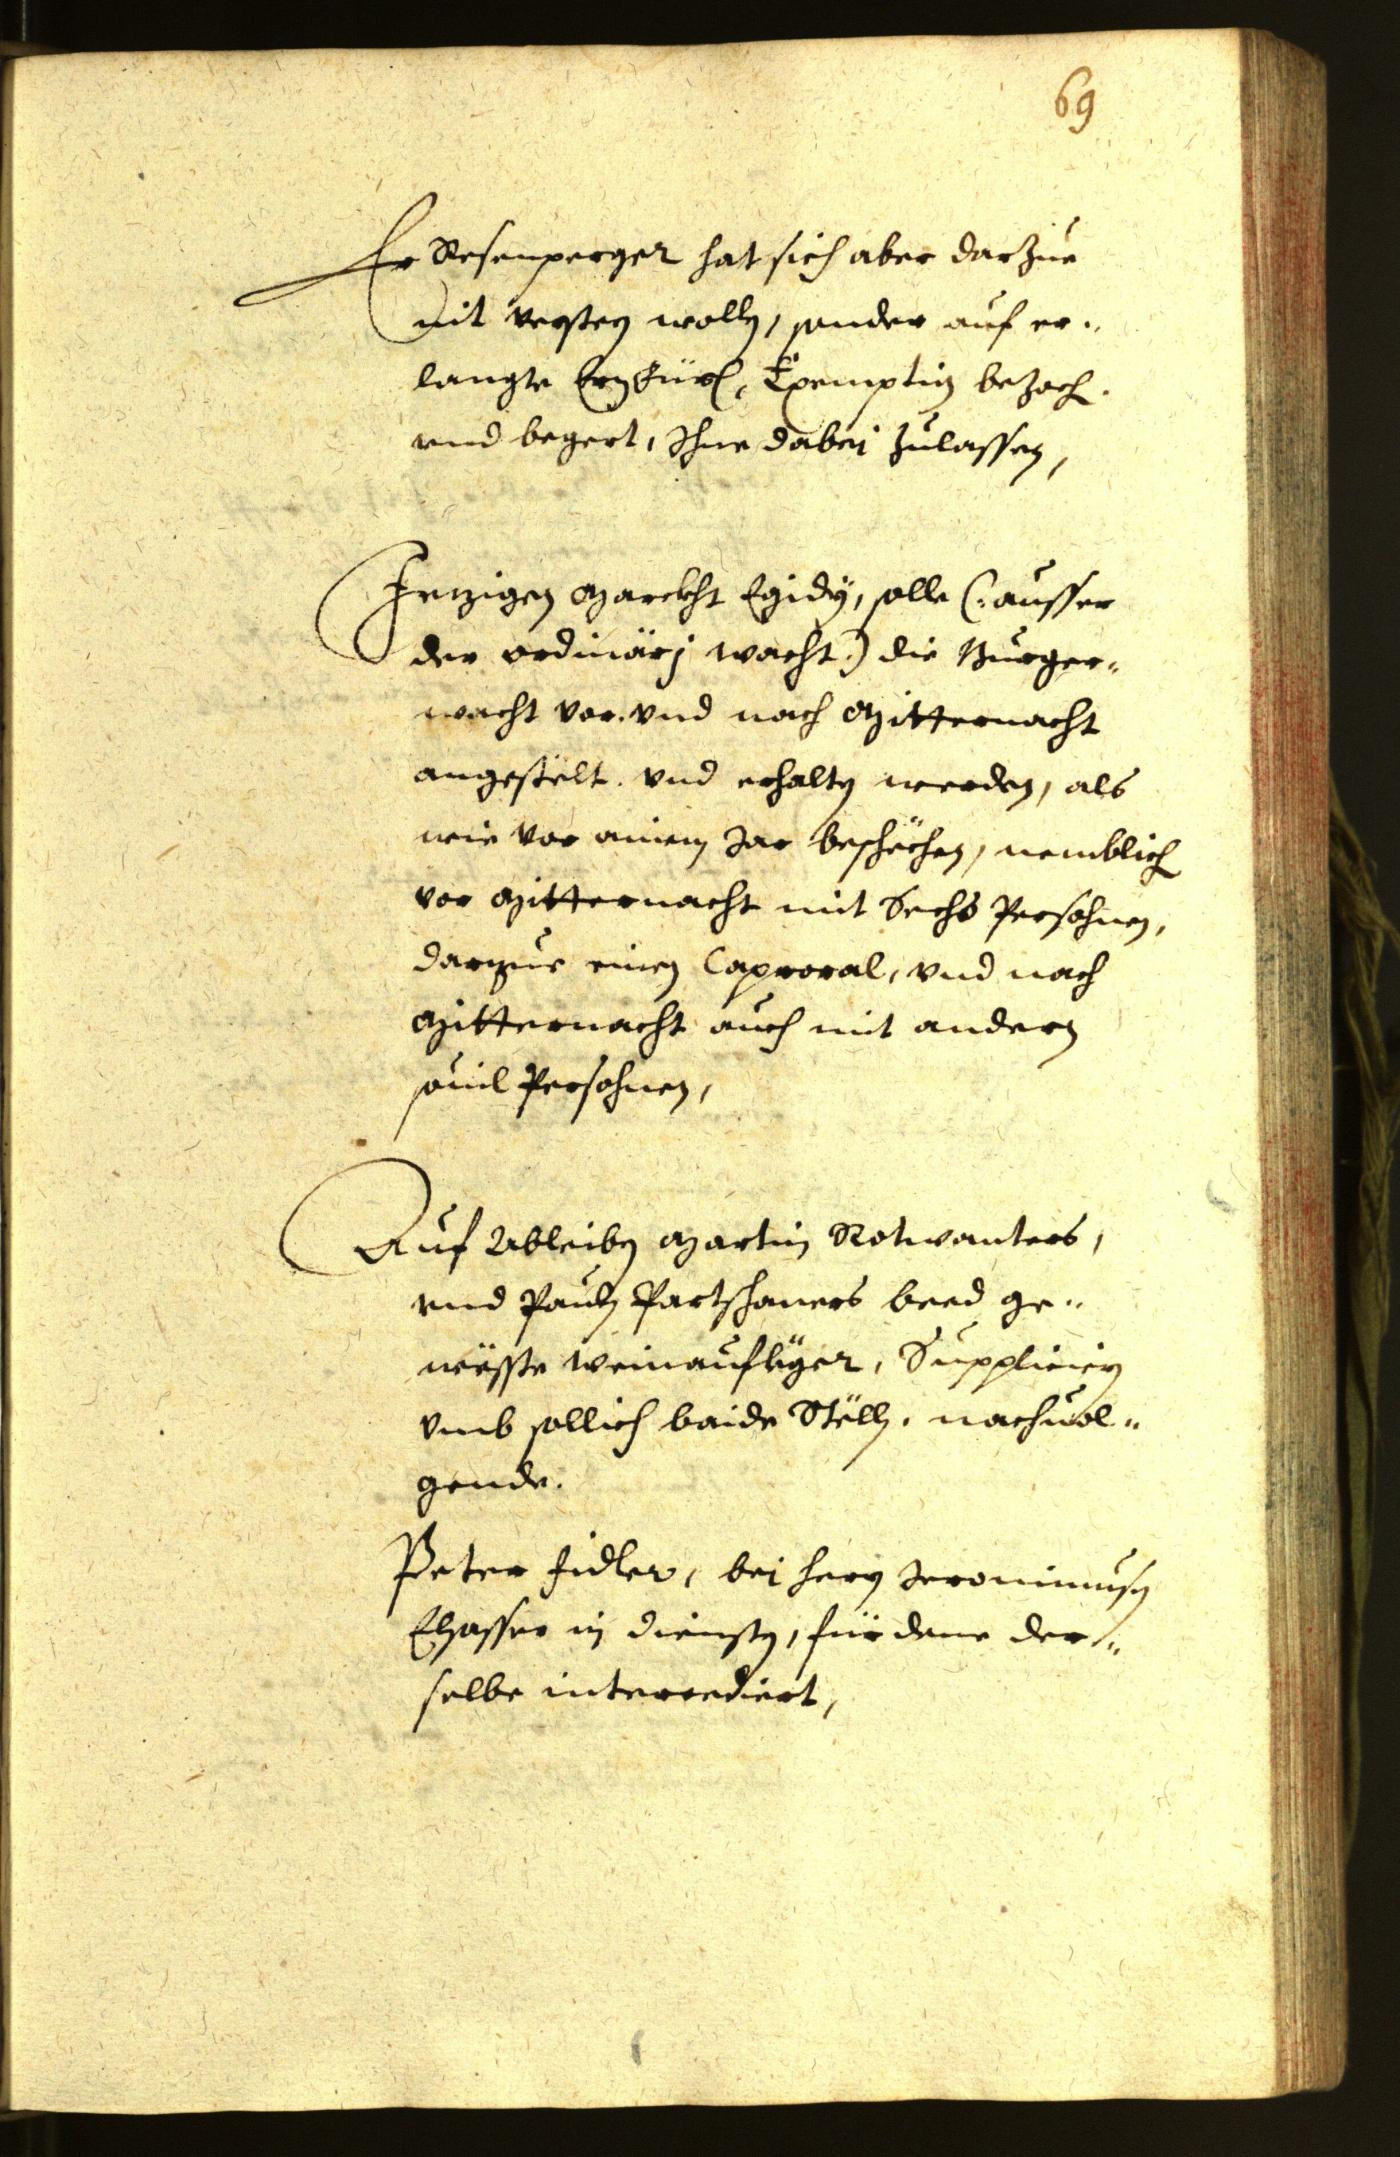 69
Er Resenperger hat sich aber darzue
nit versteen wolln, sonder auf er¬
langte Erzfürs. Exemption bezoch.
vnd begert, Ihne dabei zulassen,
Jetzigen Marckht Egidÿ, solle (: ausser
der ordinärj wacht:) die Burger¬
wacht vor. vnd nach Mitternacht
angestelt. vnd erhalten werden, als
wie vor ainem Jar beschechen, nemblich
vor Mitternacht mit Sechs Persohnen,
darzue einen Caproral, vnd nach
Mitternacht auch mit andern
souil Persohnen,
Auf Ableiben Martin Rotwanters,
vnd Pauln Partschaners beed ge¬
wëste Weinaufleger, Suppliciern
vmb sollich baide Stëlln, nachuol¬
gende.
Peter Fidler, bei Herrn Jeronimusen
Elsasser in diensten, für dene der¬
selbe intercediert,